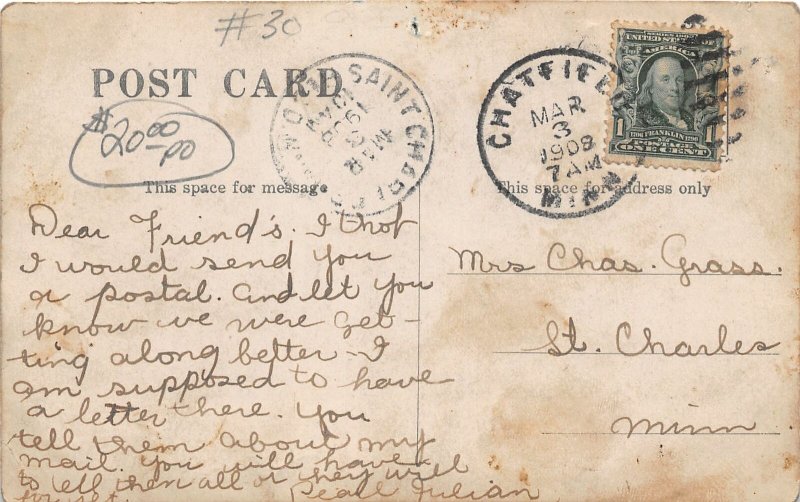 #30
POST CARD
$20.00
SAINT CHARLES
MAR
CHATFIELD
MAR
3
1908
7AM
MINN
SERIES 1902
UNITED STATES OF
AMERICA
1 1706 FRANKLIN 1790 1
POSTAGE
ONE CENT
This space for message
This space for address only
Dear Friend's. I thot
I would send you
a postal. and let you
know we were get-
ting along better - I
am supposed to have
a letter there. you
tell them about my
mail. you will have
to tell them all or they will
Pearl Julian
Mrs Chas. Grass.
St. Charles
Minn.